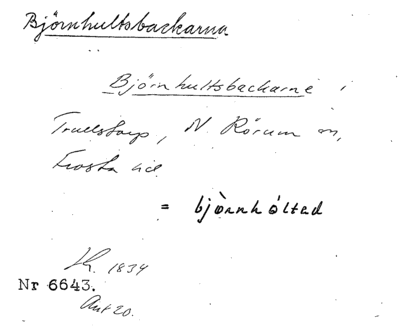 Björnhultsbackarna
Björnhultsbackarne i
Trulstorp, N. Rörum sn,
Frosta hd
= bjòrnhóltad
Lk. 1834
Nr 6643.
Akt 20.